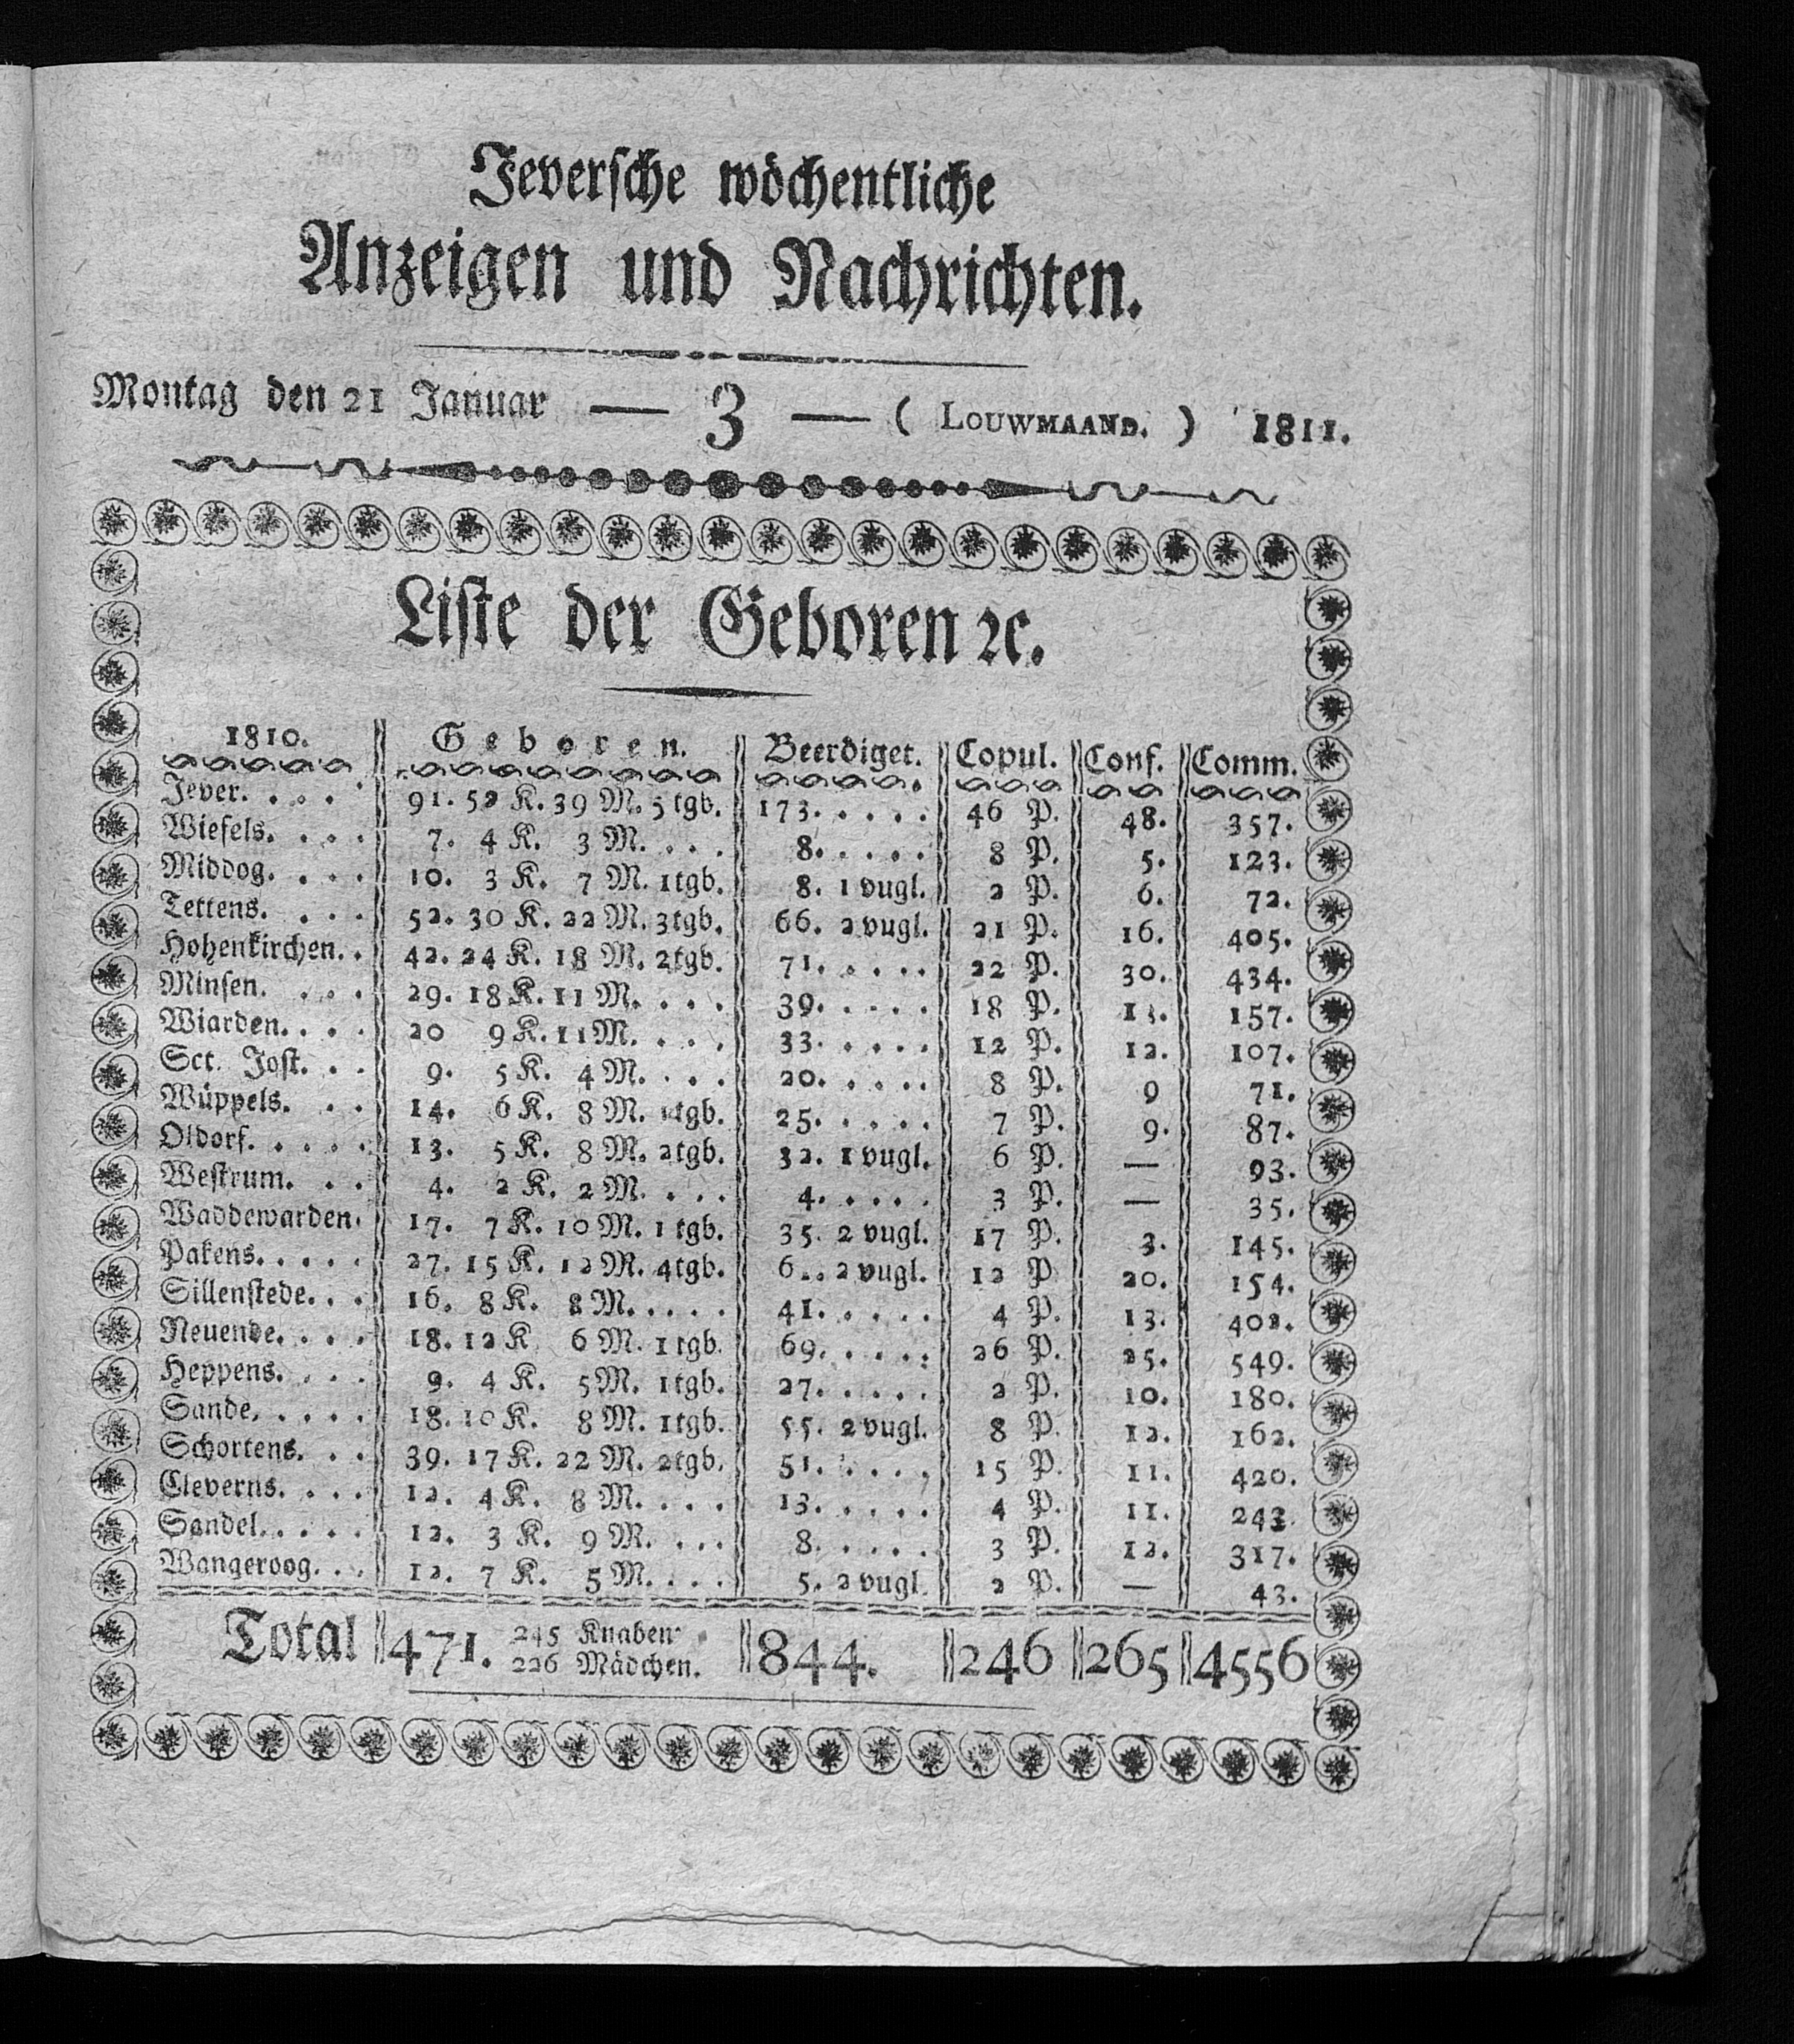 Jeversche wöchentliche
Anzeigen und Nachrichten.
Montag den 21 Januar — 3 — ( LOUWMAAND. ) 1811.
Liste der Geboren ꝛc.
1810. Geboren. Beerdiget. Copul. Conf. Comm.
Jever. . . . 91. 52 K. 39 M. 5 tgb. 173. . . . . 46 P. 48. 357.
Wiefels. . . . 7. 4 K. 3 M. . . . 8. . . . . 8 P. 5. 123.
Middog. . . . 10. 3 K. 7 M. 1 tgb. 8. 1 vugl. 2 P. 6. 72.
Tettens. . . . 52. 30 K. 22 M. 3 tgb. 66. 2 vugl. 21 P. 16. 405.
Hohenkirchen. . 42. 24 K. 18 M. 2 tgb. 71. . . . . 22 P. 30. 434.
Minsen. . . . 29. 18 K. 11 M. . . . 39. . . . . 18 P. 13. 157.
Wiarden. . . . 20 9 K. 11 M. . . . 33. . . . . 12 P. 12. 107.
Sct. Jost. . . 9. 5 K. 4 M. . . . 20. . . . . 8 P. 9 71.
Wüppels. . . 14. 6 K. 8 M. 1 tgb. 25. . . . . 7 P. 9. 87.
Oldorf. . . . . 13. 5 K. 8 M. 2 tgb. 32. 1 vugl. 6 P. — 93.
Westrum. . . 4. 2 K. 2 M. . . . 4. . . . . 3 P. — 35.
Waddewarden. 17. 7 K. 10 M. 1 tgb. 35. 2 vugl. 17 P. 3. 145.
Pakens. . . . . 27. 15 K. 12 M. 4 tgb. 2 vugl. 12 P 20. 154.
Sillenstede. . . 16. 8 K. 8 M. . . . . 41. . . . . 4 P. 13. 402.
Neuende. . . . 18. 12 K 6 M. 1 tgb. 69. . . . . 26 P. 25. 549.
Heppens. . . . 9. 4 K. 5 M. 1 tgb. 27. . . . . 2 P. 10. 180.
Sande. . . . . 18. 10 K. 8 M. 1 tgb. 55. 2 vugl. 8 P. 12. 162.
Schortens. . . 39. 17 K. 22 M. 2 tgb. 51. . . . . 15 P. 11. 420.
Cleverns. . . . 12. 4 K. 8 M. . . . 13. . . . . 4 P. 11. 243.
Sandel. . . . . 12. 3 K. 9 M. . . . 8. . . . . 3 P. 12. 317.
Wangeroog. . . 12. 7 K. 5 M. . . . 5. 2 vugl. 2 P. — 43.
Total 471. 245 Knaben 844. 246 265 4556
226 Mädchen.